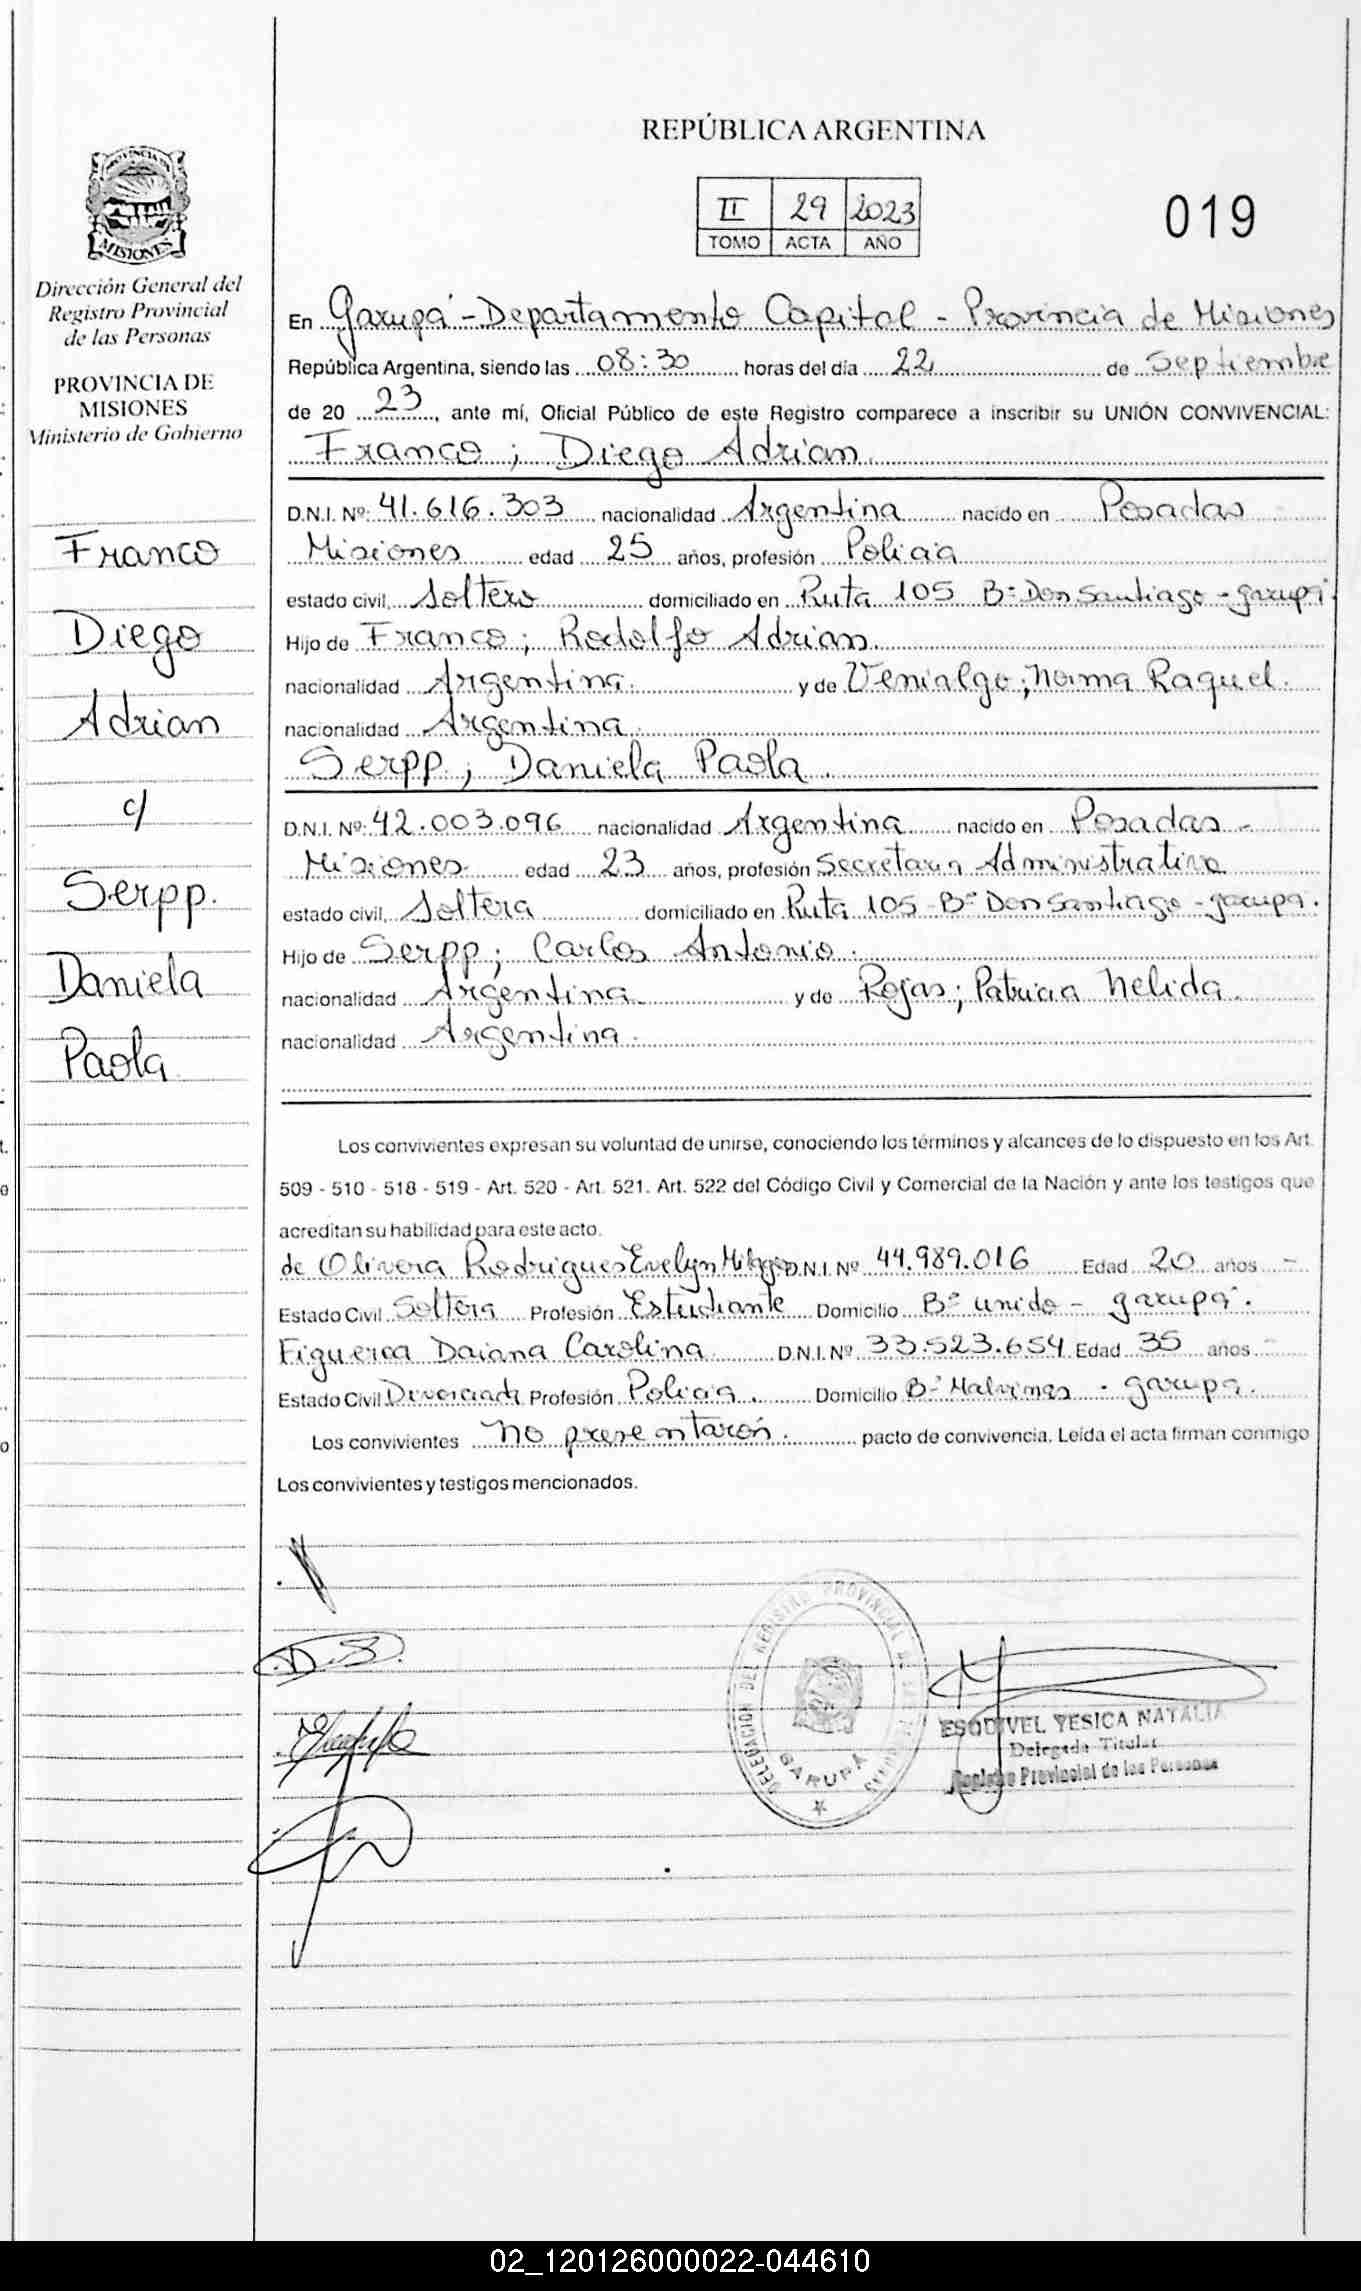 REPÚBLICA ARGENTINA
II 29 2023
TOMO ACTA AÑO
019
PROVINCIA DE
MISIONES
Dirección General del
Registro Provincial
de las Personas
PROVINCIA DE
MISIONES
Ministerio de Gobierno
Franco
Diego
Adrian
c/
Serpp.
Daniela
Paola
En Garupá - Departamento Capital - Provincia de Misiones
República Argentina, siendo las 08:30 horas del día 22 de Septiembre
de 20 23, ante mí, Oficial Público de este Registro comparece a inscribir su UNIÓN CONVIVENCIAL:
Franco ; Diego Adrian.
D.N.I. Nº: 41.616.303 nacionalidad Argentina nacido en Posadas -
Misiones edad 25 años, profesión Policia
estado civil, Soltero domiciliado en Ruta 105 Bº Don Santiago - garupá.
Hijo de Franco ; Rodolfo Adrian.
nacionalidad Argentina. y de Venialgo ; Norma Raquel.
nacionalidad Argentina.
Serpp ; Daniela Paola.
D.N.I. Nº: 42.003.096 nacionalidad Argentina nacido en Posadas -
Misiones. edad 23 años, profesión Secretaria Administrativa
estado civil, Soltera domiciliado en Ruta 105 Bº Don Santiago - garupá.
Hijo de Serpp ; Carlos Antonio.
nacionalidad Argentina. y de Rojas ; Patricia Nelida.
nacionalidad Argentina.
Los convivientes expresan su voluntad de unirse, conociendo los términos y alcances de lo dispuesto en los Art.
509 - 510 - 518 - 519 - Art. 520 - Art. 521. Art. 522 del Código Civil y Comercial de la Nación y ante los testigos que
acreditan su habilidad para este acto.
de Olivera Rodrigues Evelyn Milagros D.N.I. Nº 44.989.016 Edad 20 años -
Estado Civil Soltera Profesión Estudiante Domicilio Bº unido - garupá.
Figueroa Daiana Carolina D.N.I. Nº 33.523.654 Edad 35 años -
Estado Civil Divorciada Profesión Policia. Domicilio Bº Malvinas - garupá.
Los convivientes no presentaron. pacto de convivencia. Leída el acta firman conmigo
Los convivientes y testigos mencionados.
D.S.
DELEGACION DEL REGISTRO PROVINCIAL DE LAS PERSONAS
GARUPA
ESQUIVEL YESICA NATALIA
Delegada Titular
Registro Provincial de las Personas
02_120126000022-044610